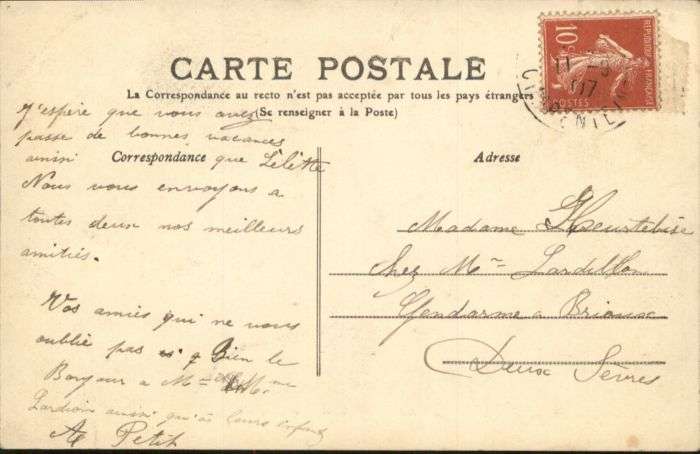 CARTE POSTALE
La Correspondance au recto n'est pas acceptée par tous les pays étrangers
(Se renseigner à la Poste)
Correspondance
J'espère que vous avez
passe de bonnes vacances
ainsi que Lélette
Nous vous envoyons a
toutes deux nos meilleurs
amitiés.
Vos amies qui ne vous
oublie pas Bien le
Bonjour a Mr et Mme
ainsi qu'à leurs enfants
Petit
Adresse
Madame Heurtebise
Chez Mr Lardillon
Gendarme a Brioux
Deux Sèvres
10c
REPUBLIQUE FRANÇAISE
POSTES
11
17